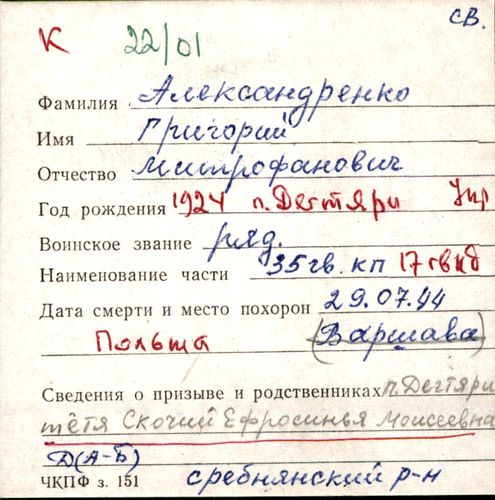 св.
К 22/01
Фамилия Александренко
Имя Григорий
Отчество Митрофанович
Год рождения 1924 п. Дегтяри Укр
Воинское звание ряд.
Наименование части 35гв. кп 17 гвкд
Дата смерти и место похорон 29.07.44
Польша (Варшава)
Сведения о призыве и родственниках п. Дегтяри
тётя Скочий Ефросинья Моисеевна
Д(А-Б)
ЧКПФ з. 151 сребнянский р-н